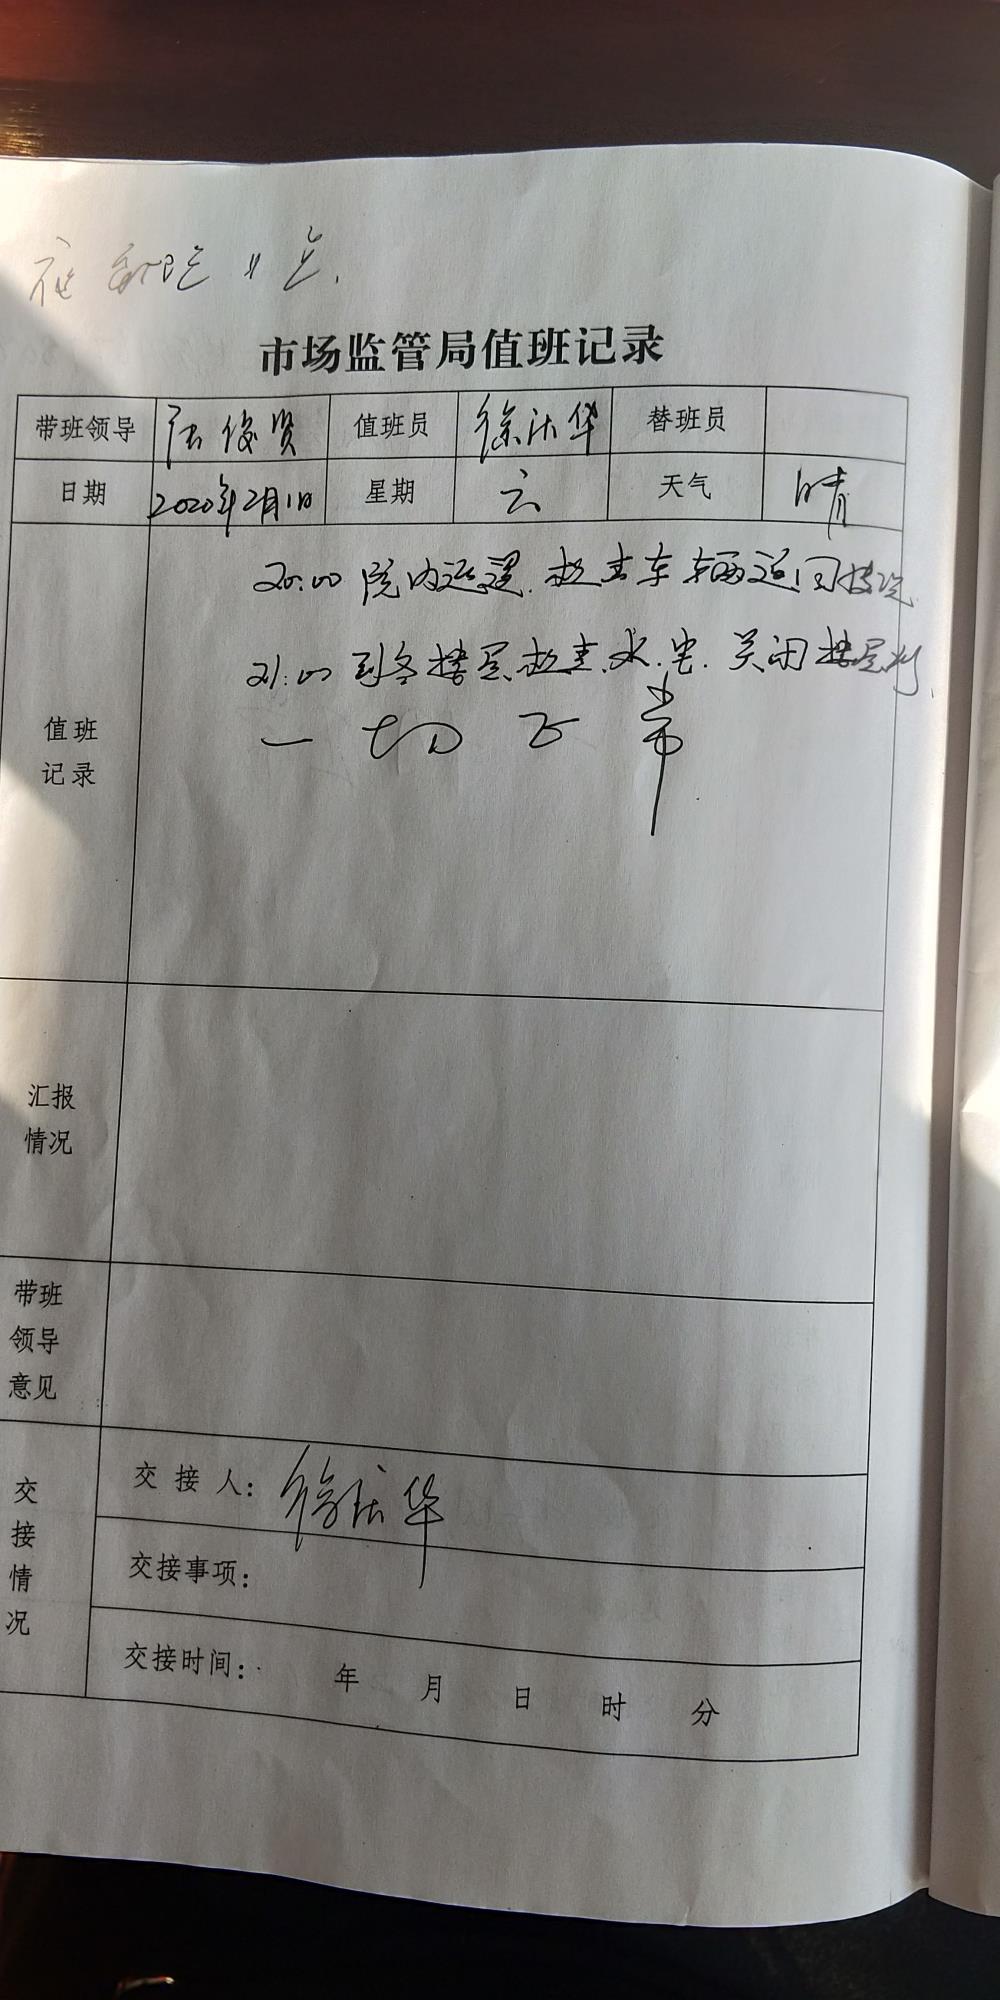 市场监管局值班记录
带班领导 俊贤 值班员 徐庆华 替班员
日期 2020年2月1日 星期 六 天气 晴
值班记录
20:00 院内巡逻.检查车辆返回情况
21:00 到各楼层检查水.电.关闭楼层灯.
一切正常
汇报情况
带班领导意见
交接情况
交接人: 徐庆华
交接事项:
交接时间: 年 月 日 时 分